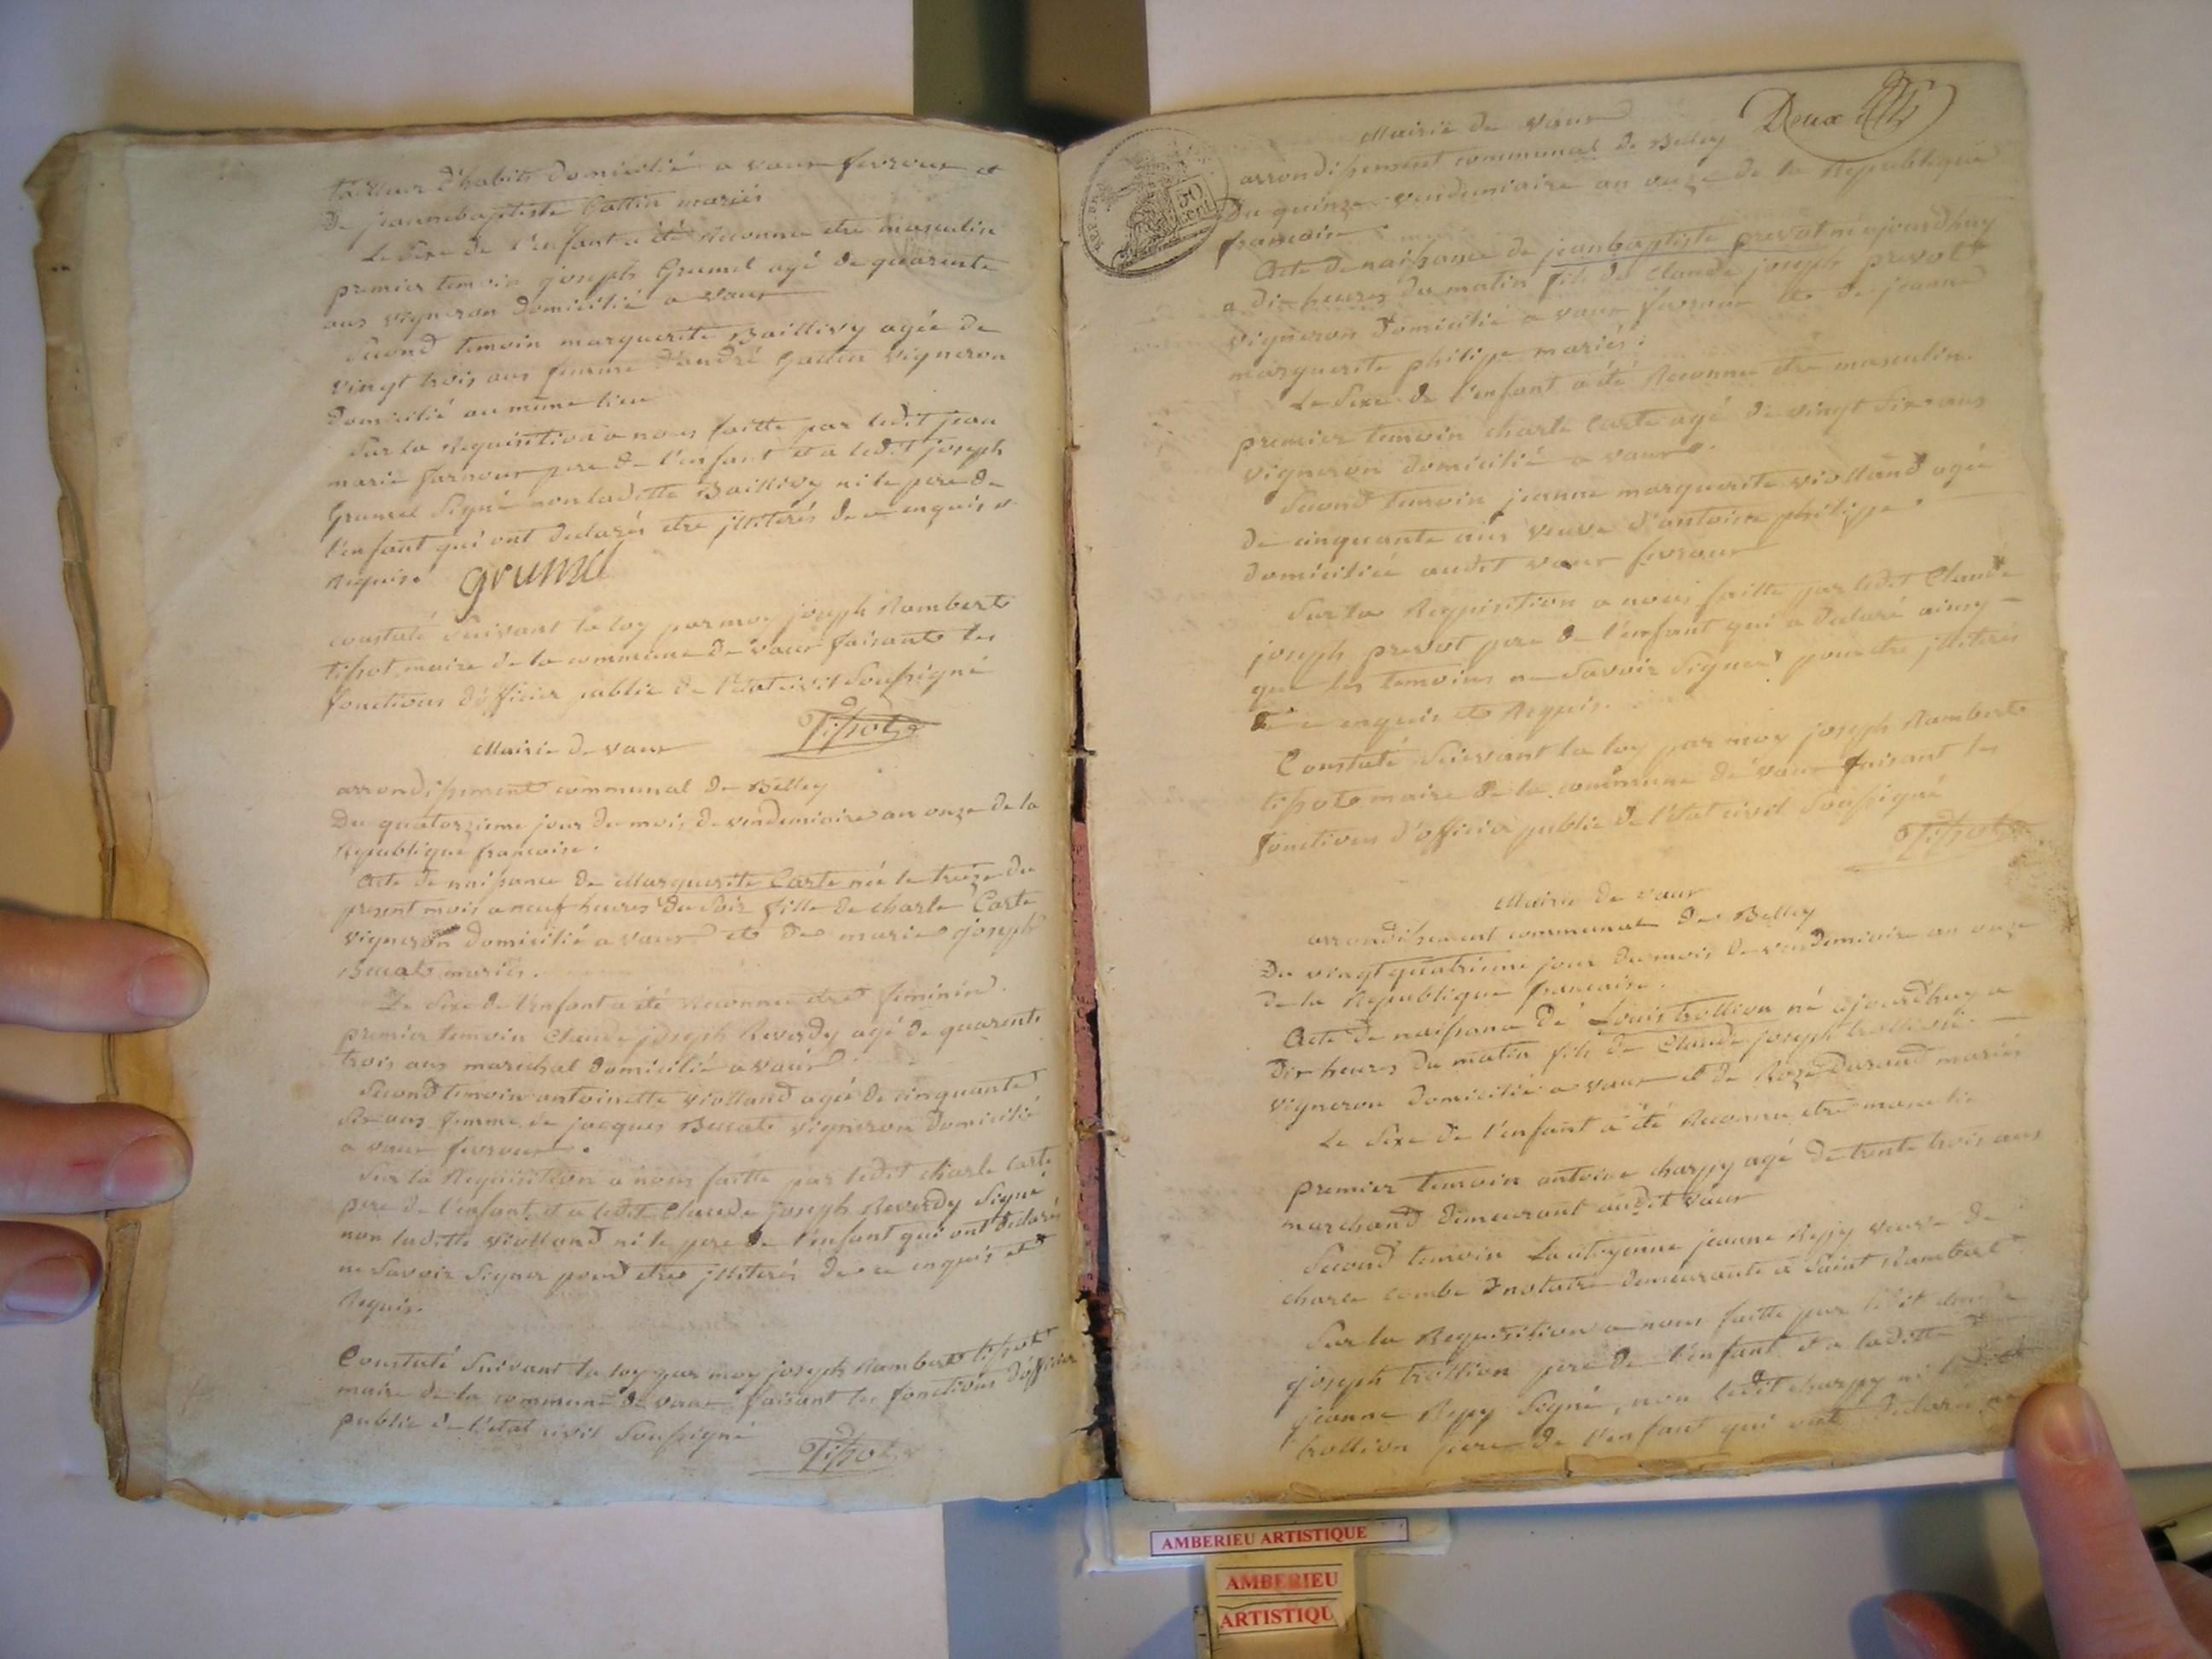 tailleur d'habits domicilié a vaux fevroux et
De jeannebaptiste Gattin mariés
Le Sexe de l'enfant a été Reconnu etre masculin
premier temoin joseph Grumel agé de quarente
ans vigneron domicilié a vaux
Second temoin marguerite Baillivy agée de
vingt trois ans femme d'andré Gattin vigneron
domicilié au même lieu
Sur la Requisition a nous faitte par ledit jean
marie farnoux pere de l'enfant et a ledit joseph
Grumel Signé non laditte Baillivy ni le pere de
l'enfant qui ont declarés etre jlliterés de ce enquis et
Requis.
grumel
constaté Suivant la loy par moy joseph Rambert
tissot maire de la commune de vaux faisant les
fonctions d'officier public de l'état civil Soussigné
Tissot
Mairie de vaux
arrondissement communal de Belley
Du quatorzieme jour du mois de vendemiaire an onze de la
Republique francaise.
Acte de naissance de Marguerite Carte née le treize du
present mois a neuf heures du Soir fille de charle Carte
vigneron domicilié a vaux et de marie joseph
Bucat mariés.
Le Sexe de l'enfant a été Reconnu etre feminin.
premier temoin Claude joseph Reverdy agé de quarente
trois ans marichal domicilié a vaux.
Second temoin antoinette violland agée de cinquante
Six ans femme de jacques Bucat vigneron domicilié
a vaux fevroux.
Sur la Requisition a nous faitte par ledit charle carte
pere de l'enfant et a ledit Claude joseph Reverdy Signé
non laditte violland ni le pere de l'enfant qui ont declarés
ne Savoir Signer pour etre jlliterés de ce enquis et
Requis.
Constaté Suivant la loy par moy joseph Rambert tissot
maire de la commune de vaux faisant les fonctions d'officier
public de l'état civil Soussigné
Tissot
Deux
50 cent
Mairie de vaux
arrondissement communal de Belley
Du quinze vendemiaire an onze de la Republique
francaise.
Acte de naissance de jeanbaptiste prevot né ajourdhuy
a dix heures du matin fils de Claude joseph prevot
vigneron domicilié a vaux fevroux et de jeanne
marguerite philippe mariés.
Le Sexe de l'enfant a été Reconnu etre masculin.
premier temoin charle Carte agé de vingt Six ans
vigneron domicilié a vaux.
Second temoin jeanne marguerite violland agée
de cinquante ans veuve d'antoine philippe
domiciliée audit vaux fevroux
Sur la Requisition a nous faitte par ledit Claude
joseph prevot pere de l'enfant qui a declaré ainsy
que les temoins ne Savoir Signer pour etre jlliterés
de ce enquis et Requis.
Constaté Suivant la loy par moy joseph Rambert
tissot maire de la commune de vaux faisant les
fonctions d'officier public de l'état civil Soussigné
Tissot
Mairie de vaux
arrondissement communal de Belley
Du vingt quatrieme jour du mois de vendemiaire an onze
de la Republique francaise.
Acte de naissance de Louis trollion né ajourdhuy a
dix heures du matin fils de Claude joseph trollion
vigneron domicilié a vaux et de Roze Durand mariés
Le Sexe de l'enfant a été Reconnu etre masculin
premier temoin antoine charpy agé de trente trois ans
marchand demeurant audit vaux
Second temoin La citoyenne jeanne Reppy veuve de
charle combe notaire demeurante a Saint Rambert
Sur la Requisition a nous faitte par ledit Claude
joseph trollion pere de l'enfant et a laditte
jeanne Reppy Signé, non ledit charpy ni ledit
trollion pere de l'enfant qui ont declaré ne
AMBERIEU ARTISTIQUE
AMBERIEU
ARTISTIQU